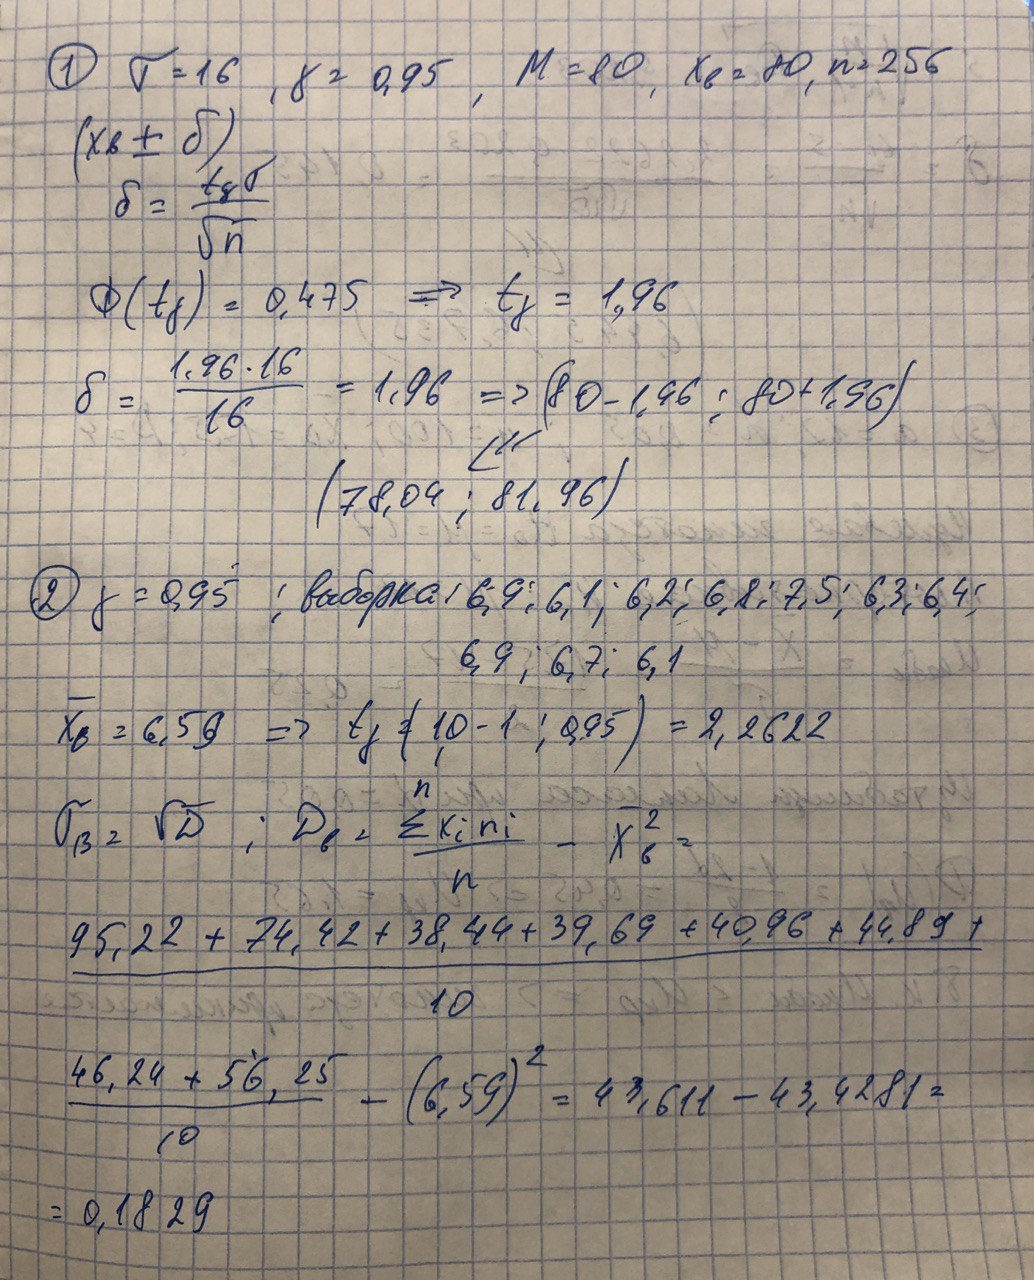 ① σ = 16 , γ = 0,95 , M = 80, xв = 80, n = 256
(xв ± δ)
δ = tγσ / √n
Φ(tγ) = 0,475 => tγ = 1,96
δ = 1.96·16 / 16 = 1,96 => (80 - 1,96 ; 80 + 1,96)
(78,04 ; 81,96)
② γ = 0,95 ; выборка: 6,9; 6,1; 6,2; 6,8; 7,5; 6,3; 6,4;
6,9; 6,7; 6,1
x̄в = 6,59 => tγ = (10 - 1 ; 0,95) = 2,2622
σв = √D ; Dв = n Σ xi ni / n - x̄в² =
95,22 + 74,42 + 38,44 + 39,69 + 40,96 + 44,89 + / 10
46,24 + 56,25 / 10 - (6,59)² = 43,611 - 43,4281 =
= 0,1829